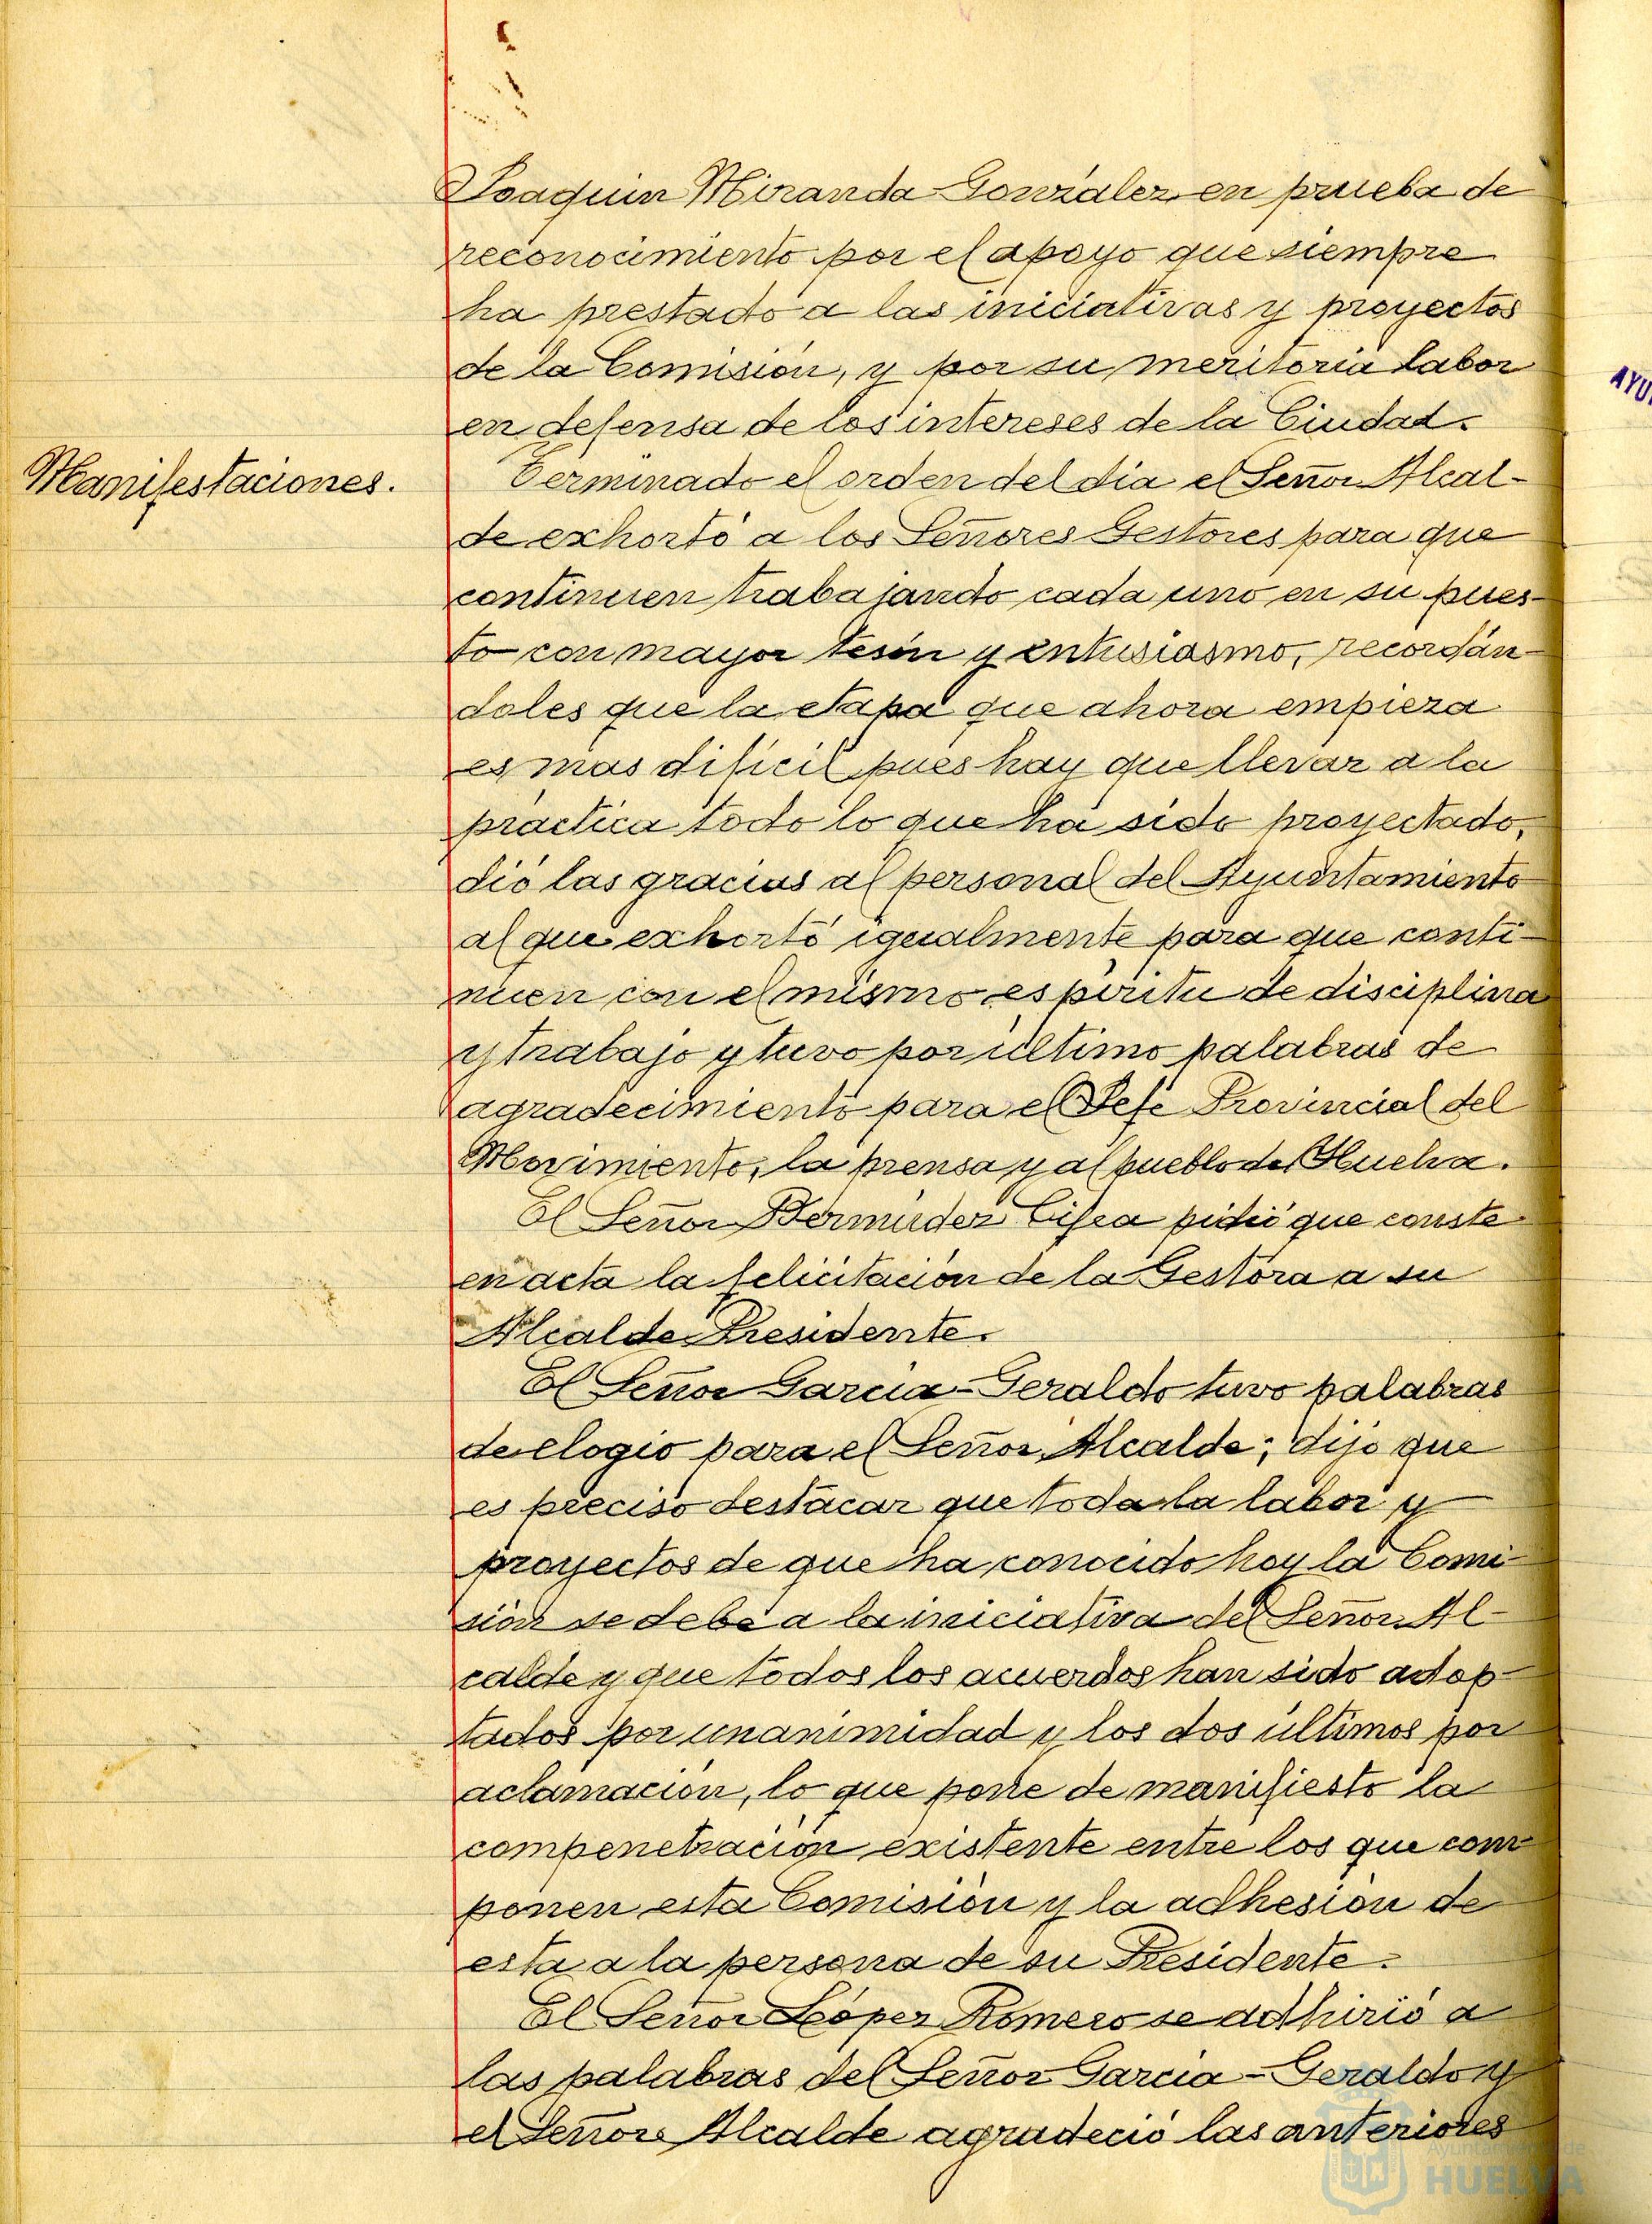 Joaquin Miranda Gonzalez en prueba de
reconocimiento por el apoyo que siempre
ha prestado a las iniciativas y proyectos
de la Comisión, y por su meritoria labor
en defensa de los intereses de la Ciudad.
Manifestaciones.
Terminado el orden del dia el Señor Alcal-
de exhortó a los Señores Gestores para que
continuen trabajando cada uno en su pues-
to con mayor tesón y entusiasmo, recordán-
doles que la etapa que ahora empieza
es mas dificil pues hay que llevar a la
practica todo lo que ha sido proyectado,
dió las gracias al personal del Ayuntamiento
al que exhortó igualmente para que conti-
nuen con el mismo espiritu de disciplina
y trabajo y tuvo por último palabras de
agradecimiento para el Jefe Provincial del
Movimiento, la prensa y al pueblo de Huelva.
El Señor Bermudez Cifea pidió que conste
en acta la felicitación de la Gestora a su
Alcalde Presidente.
El Señor Garcia-Geraldo tuvo palabras
de elogio para el Señor Alcalde; dijo que
es preciso destacar que toda la labor y
proyectos de que ha conocido hoy la Comi-
sión se debe a la iniciativa del Señor Al-
calde y que todos los acuerdos han sido adop-
tados por unanimidad y los dos últimos por
aclamación, lo que pone de manifiesto la
compenetración existente entre los que com-
ponen esta Comisión y la adhesión de
esta a la persona de su Presidente.
El Señor López Romero se adhirió a
las palabras del Señor Garcia-Geraldo y
el Señor Alcalde agradeció las anteriores
AYU
Ayuntamiento de
HUELVA